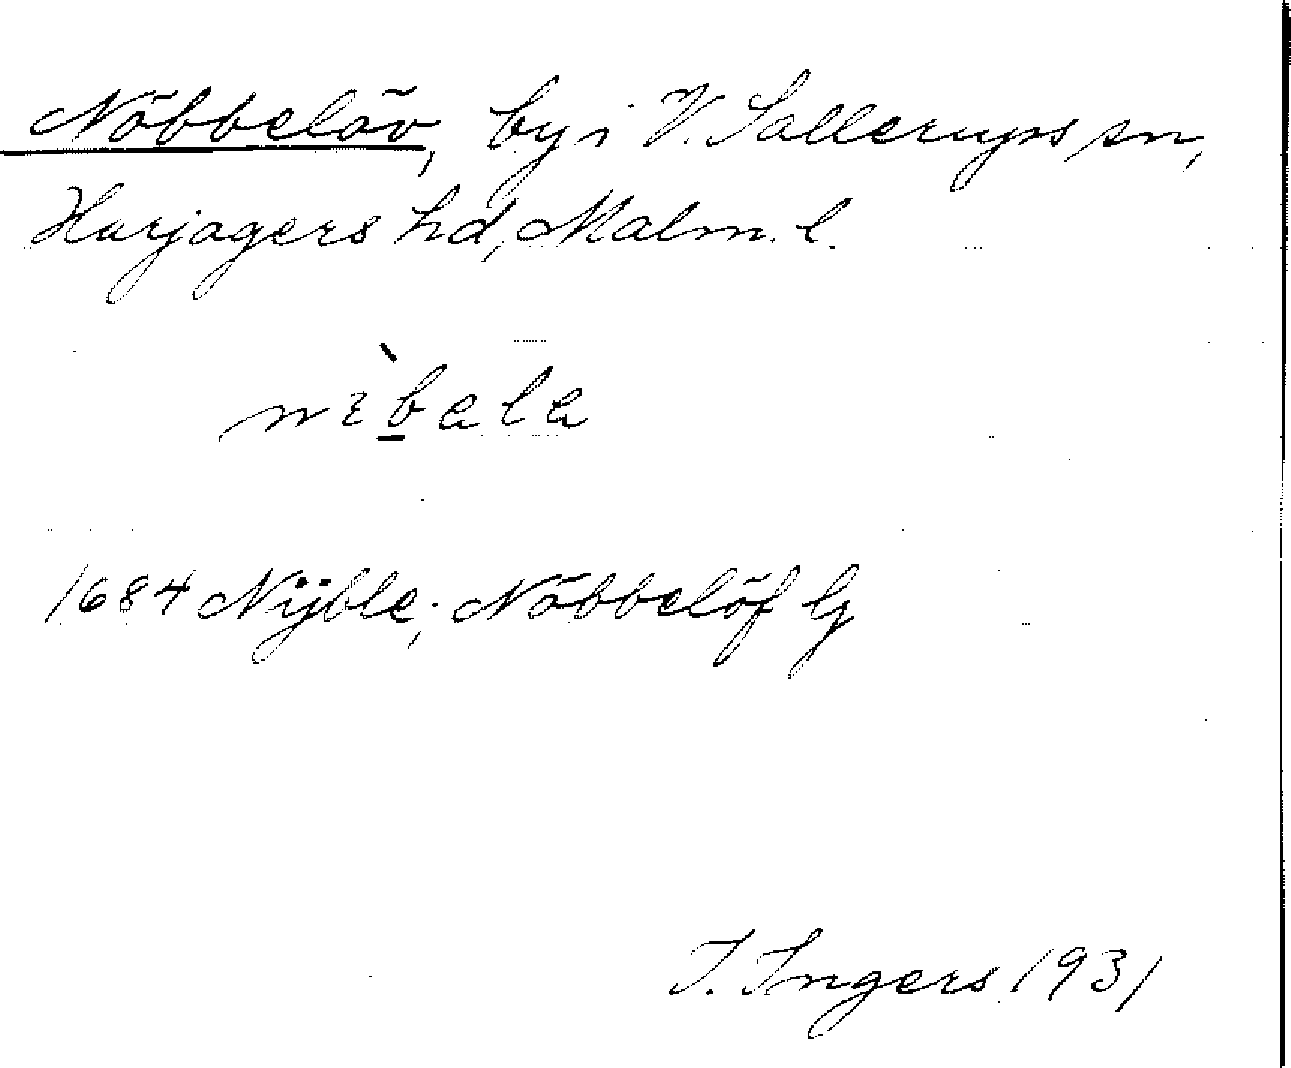 Nöbbelöv, by i V. Sallerups sn,
Harjagers hd, Malm. l.
1684 Nÿble; Nöbbelöf
I. Ingers 1931